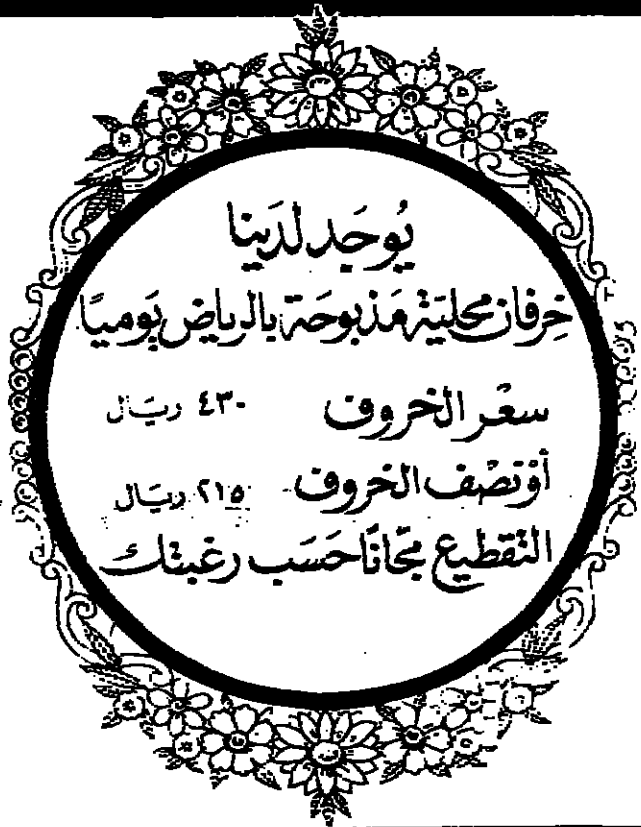 يُوجَد لدَينا
خِرفان محليَّة مَذبوحَة بالرياض يَوميًا
سعْر الخروف ٤٣٠ ريَال
أوْ نصْف الخروف ٢١٥ ريَال
التقطيع مجَّانًا حَسَب رغبتك